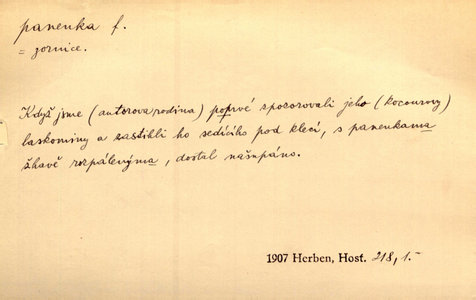 panenka f.
= zornice.
Když jsme (autorova rodina) poprvé zpozorovali jeho (kocourovy)
laskominy a zastihli ho sedícího pod klecí, s panenkama
žhavě rozpálenýma, dostal našupáno.
1907 Herben, Host. 218,1.-